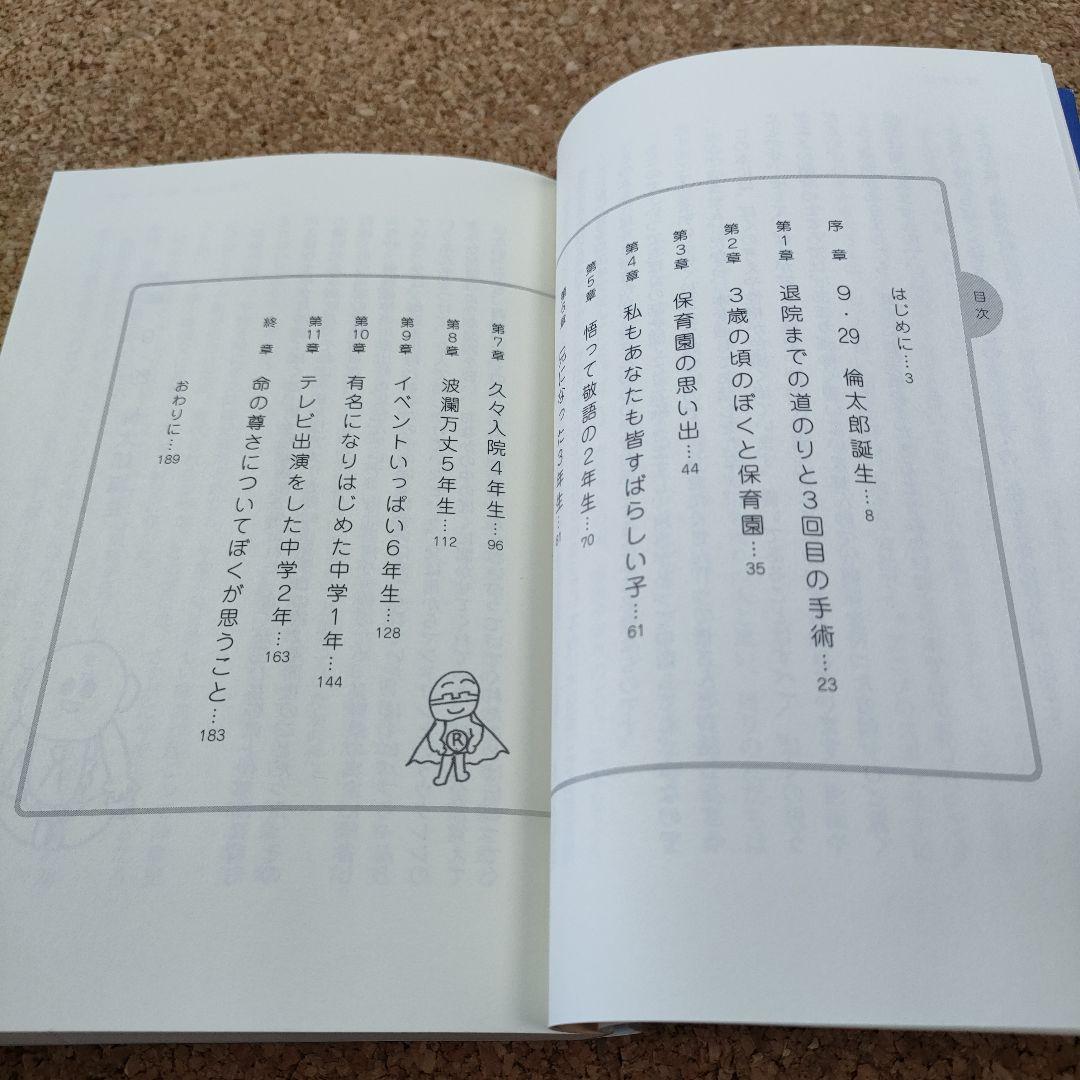 目次
はじめに…3
序章 9・29 倫太郎誕生…8
第1章 退院までの道のりと3回目の手術…23
第2章 3歳の頃のぼくと保育園…35
第3章 保育園の思い出…44
第4章 私もあなたも皆すばらしい子…61
第5章 悟って敬語の2年生…70
第6章 3年生…81
第7章 久々入院4年生…96
第8章 波瀾万丈5年生…112
第9章 イベントいっぱい6年生…128
第10章 有名になりはじめた中学1年…144
第11章 テレビ出演をした中学2年…163
終章 命の尊さについてぼくが思うこと…183
おわりに…189
R